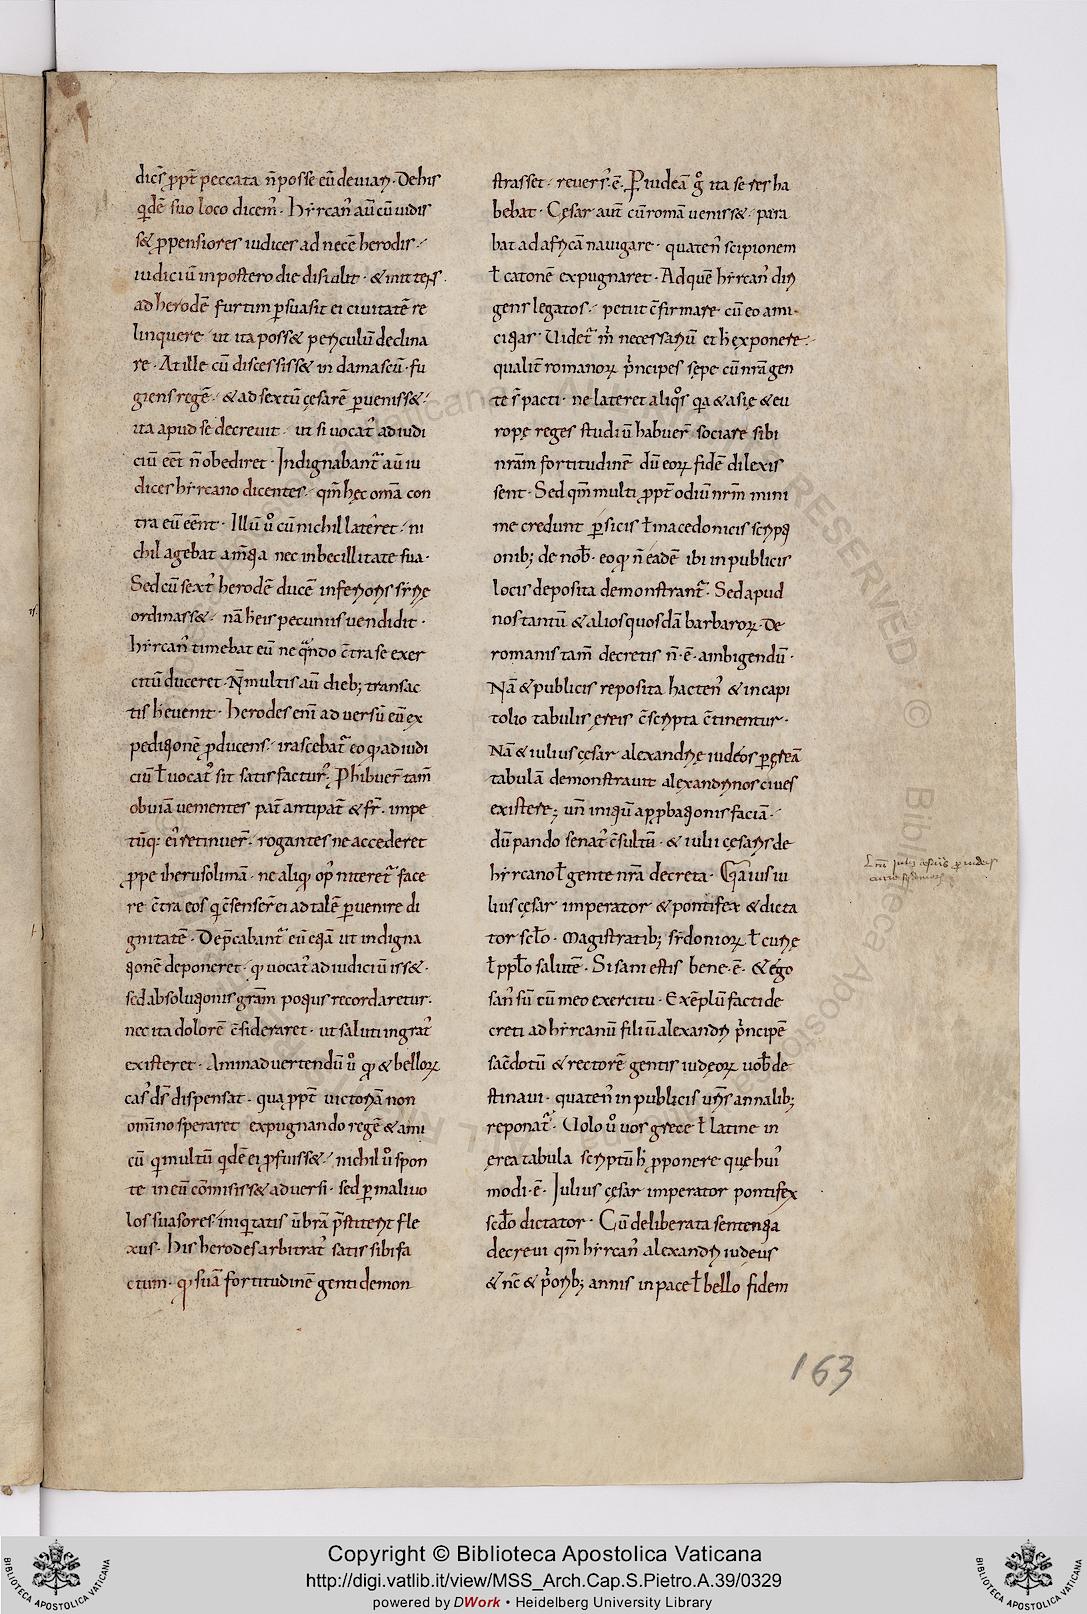 dicẽs ꝓpt̃ peccata ñ posse eũ deuiari. De his
qⁱdẽ suo loco dicem᷒. hircan᷒ aũ cũ uidis
s& ꝓpensiores iudices ad necẽ herodis.
iudiciũ in postero die distulit. & mittens
ad herodẽ furtim ꝑsuasit ei ciuitatẽ re
linquere. ut ita poss& periculũ declina
re. At ille cũ discessiss& in damascũ. fu
giens regẽ. & ad sextũ cęsarẽ ꝑueniss&.
ita apud se decreuit. ut si uocat᷒ ad iudi
ciũ eẽt ñ obediret. Indignabant᷑ aũ iu
dices hircano dicentes. qm̃ hęc om̃a con
tra eũ eẽnt. Illũ ů cũ nichil lateret. ni
chil agebat am̃tia nec inbecillitate sua.
Sed cũ sext᷒ herodẽ ducẽ inferioris sirię
ordinass&. nã h̃ eis pecuniis uendidit.
hircan᷒ timebat eũ ne qᵃndo c̃tra se exer
citũ duceret. Ñ multis aũ dieb; transac
tis h̃ euenit. herodes eni᷒ aduersũ eũ ex
peditionẽ ꝓducens. irascebat᷑ eo qꝫ ad iudi
ciũ ł uocat᷒ sit satisfactur᷒. Phibuer̃ tam̃
obuiã uenientes pat̃ antipat̃ & fr̃. impe
tũq: ei᷒ retinuer̃. rogantes ne accederet
ꝓpe iherusolimã. ne aliqꝫ op᷒ niteret᷑ face
re c̃tra eos qⁱ c̃senser̃ ei ad talẽ ꝑuenire di
gnitatẽ. Dep̃cabant᷑ eũ etiã ut indigna
tionẽ deponeret. qꝫ uocat᷒ ad iudiciũ iss&.
sed absolutionis grãm potius recordaretur.
nec ita dolorẽ c̃sideraret. ut saluti ingrat᷒
existeret. Animaduertendũ ů qꝫ & belloꝝ
cas᷒ ds̃ dispensat. qua ꝓpt̃ uictoriã non
omnino speraret expugnando regẽ & ami
cũ qⁱ multũ qⁱdẽ ei ꝓfuiss&. nichil ů spon
te in eũ cõmisiss& aduersi. sed ꝑ maliuo
los suasores. iniqⁱtatis ũbrã p̃stiterit fle
xus. His herodes arbitrat᷒ satis sibi fa
ctum. qꝫ suã fortitudinẽ genti demon
strasset. reuers᷒. ẽ. P iudeã gͦ ita se res ha
bebat. Cęsar aut̃ cũ romã ueniss&. para
bat ad africã nauigare. quaten᷒ scipionem
ł catonẽ expugnaret. Ad quẽ hircan᷒ diri
gens legatos. petiit c̃firmare. cũ eo ami
citias. Uidet᷑ m̃ necessariũ et h̃ exponere.
qualit̃ romanoꝝ pⁱncipes sepe cũ nr̃a gen
te s̃ pacti. ne lateret aliqͦs qⁱa & asię & eu
ropę reges studiũ habuer̃ sociare sibi
nrãm fortitudinẽ dũ eoꝝ fidẽ dilexis
sent. Sed qm̃ multi ꝓpt̃ odiũ nrm̃ mini
me credunt ꝑsicis ł macedonicis scripti
onib; de nob̃. eo qꝫ ñ eadẽ ibi in publicis
locis deposita demonstrant᷑. Sed apud
nos tantũ & alios quosdã barbaroꝝ. De
romanis tam̃ decretis ñ. ẽ. ambigendũ.
Nã & publicis reposita hacten᷒ & in capi
tolio tabulis ęreis c̃scripta c̃tinentur.
Nã & iulius cęsar alexandrię iudeos ꝑ ęreã
tabulã demonstrauit alexandrinos ciues
existere; uñ iniqũ appbationis faciã.
dũ pando senat᷒ c̃sultũ. & iulii cęsaris de
hircano ł gente nr̃a decreta. Gaius iu
lius cęsar imperator & pontifex & dicta
tor scd̃o. Magistratib; sidonioꝝ ł curię
ł pplo salutẽ. Si sani estis bene. ẽ. & ego
san᷒ sũ cũ meo exercitu. Exẽplũ facti de
creti ad hircanũ filiũ alexandri pⁱncipẽ
sac̃dotũ & rectorẽ gentis iudeoꝝ uob̃ de
stinaui. quaten᷒ in publicis uris̃ annalib;
reponat᷑. Uolo ů uos grece ł latine in
ęrea tabula scriptũ h̃ ꝓponere que hui᷒
modi. ẽ. Iulius cęsar imperator pontifex
scd̃o dictator. Cũ deliberata sententia
decreui qm̃ hircan᷒ alexandri iudeus
& nc̃ & pⁱorib; annis in pace ł bello fidem
163
Copyright © Biblioteca Apostolica Vaticana
http://digi.vatlib.it/view/MSS_Arch.Cap.S.Pietro.A.39/0329
powered by DWork • Heidelberg University Library
BIBLIOTECA APOSTOLICA VATICANA
BIBLIOTECA APOSTOLICA VATICANA